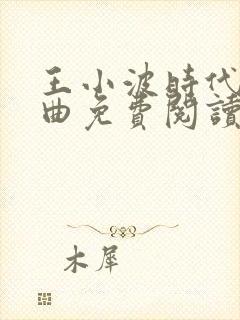 王小波時代
曲免費閱讀
木犀